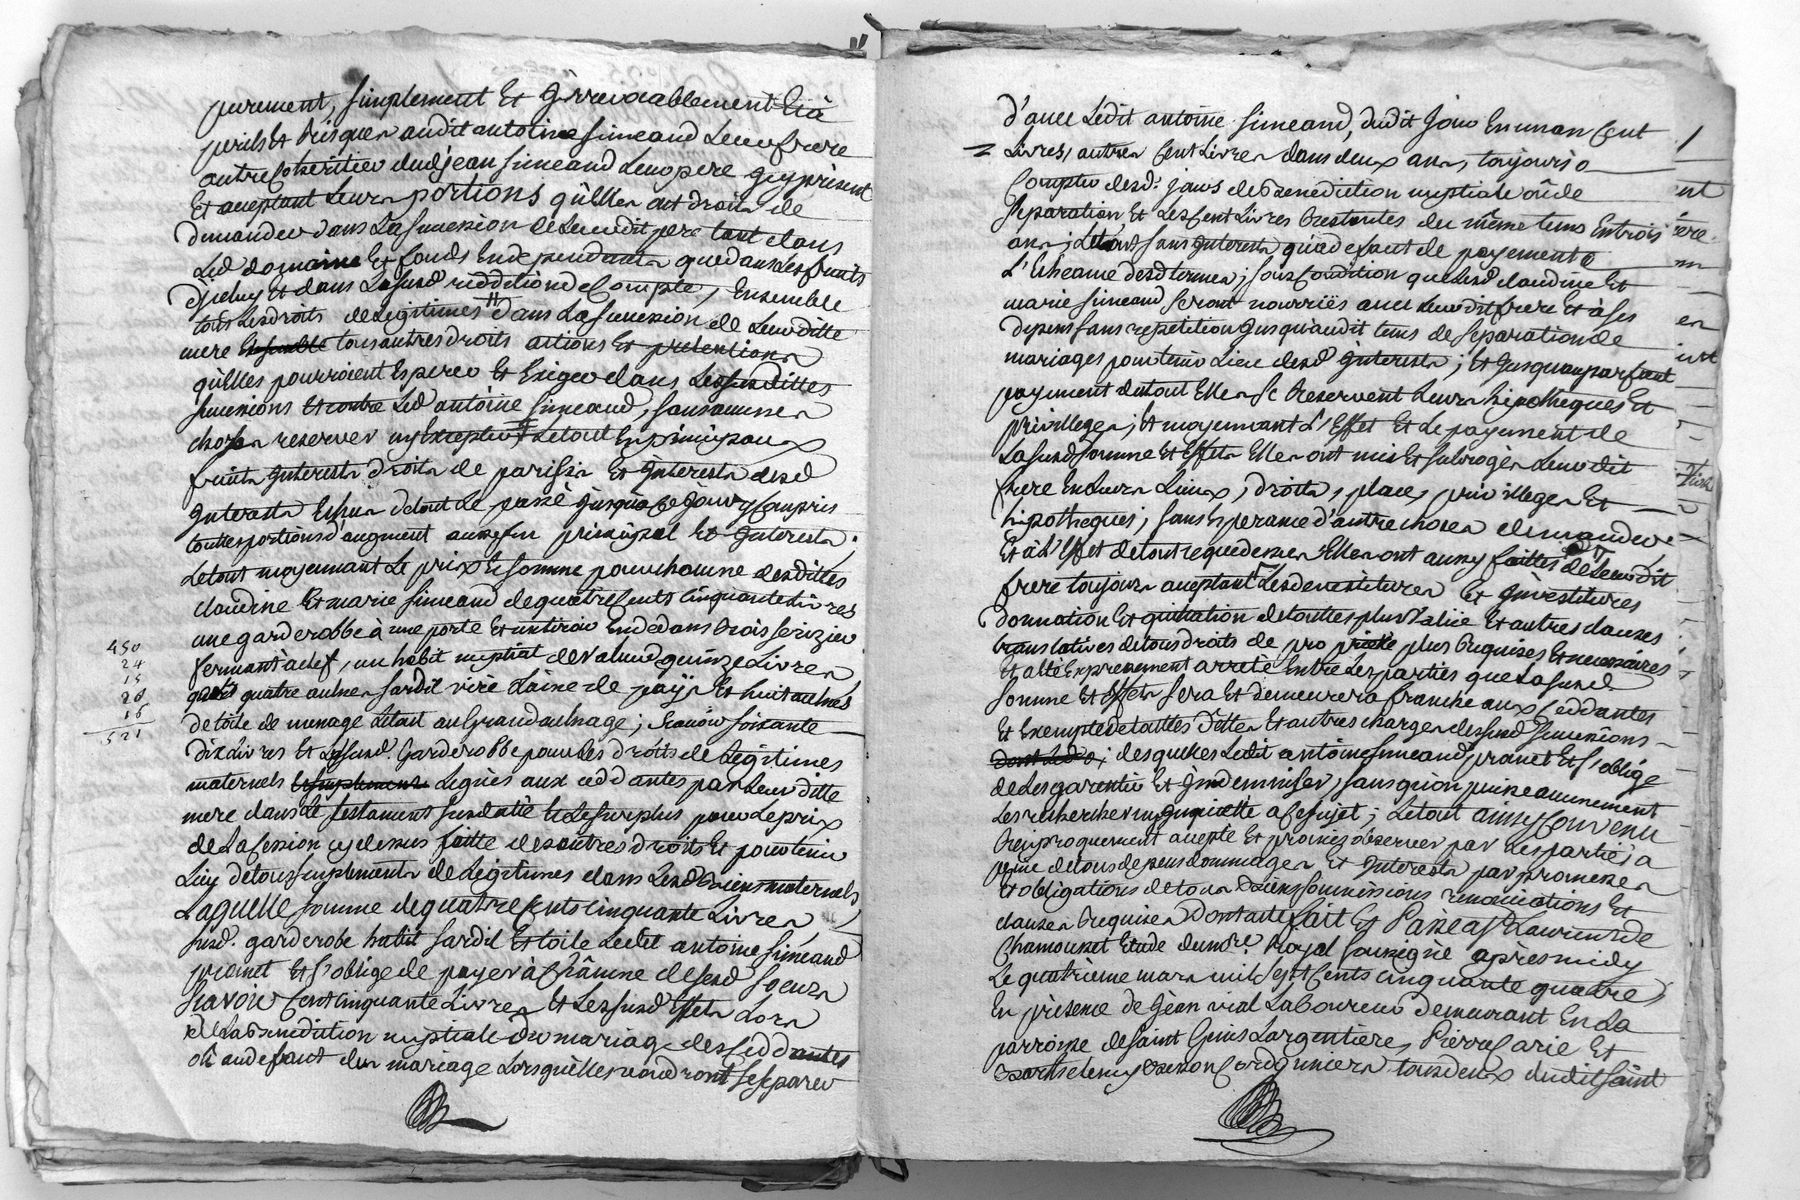 purement, simplement Et Irrevocablement Et à
perils et risques audit antoine simeand Leur frere
autre Coheritier dud jean simeand Leur pere icy présent
Et aceptant Leurs portions qu'elles ont droits de
demander dans La sucession de Leurdit pere tant dans
Led domaine Et fonds En dependants que dans Les fruits
d'iceluy et dans La susd reddition de Compte, Ensemble
tous Les droits de Legitimes dans La sucession de Leurditte
mere tous autres droits actions Et pretentions
qu'elles pourroient Esperer Et Exiger dans Les susdittes
sucessions Et contre Led antoine simeand, sans aucunes
choses reserver ny excepter Le tout En principaux
fruits Interests droits de parisis Et Interests desd
Interests Echus detout Le passé jusqua Ce jour y Compris
touttes portions d'augment aussy en principal Et Interests.
Le tout moyennant Le prix Et somme pour chacune desdittes
claudine Et marie simeand de quatre Cents Cinquante Livres
une garderobbe à une porte Et un tiroir En dedans bois serizier
450
24
15
fermant à clef, un habit nuptial de valeur de quinze Livres
quatre aulnes sardil viré Laine de païs Et huit aulnes
de toile de menage Le tout au Grand aulnage; scavoir soixante
521
dix Livres Et La susd. Garderobbe pour Les droits de Legitimes
maternels Legués aux ceddantes par Leurditte
mere dans Le testament susdatté Et Le surplus pour Le prix
de La Cession cy dessus faitte des autres droits Et pour tenir
Lieu de tous suplements de Legitimes dans Lesd Biens maternels
Laquelle somme de quatre Cents Cinquante Livres
susd. garderobe habit sardil Et toile Ledit antoine Simeand
promet Et s'oblige de payer à Châcune desesd soeurs
Scavoir Cent Cinquante Livres Et Les susd Effets Lors
de La benediction nuptiale du mariage des Ceddantes
où au defaut de mariage Lorsquelles voudront se separer
d'avec Ledit antoine Simeand, dudit jour En un an Cent
Livres, autres Cent Livres dans deux ans, toujours à
Compter desd. jours de Benediction nuptiale où de
separation, Et Les Cent Livres Restantes du même tems En trois
ans; Le tout sans Interests qu'à defaut de payement à
L'Echeance desd termes; sous Condition que Lesd claudine Et
marie simeand seront nourriës avec Leurdit frere Et à ses
depens sans repetition jusqu'audit tems de separation de
mariages pour tenir Lieu desd Interests; Et jusqu'au parfait
payement du tout Elles se Reservent Leurs hipotheques Et
privilleges; Et moyennant L'Effet Et Le payement de
La susd somme Et Effets Elles ont mis Et subrogés Leurdit
frere En Leurs Lieux, droits, place, privilleges Et
hipotheques; sans Esperance d'autre choses demander.
Et à L'Effet de tout ce que dessus Elles ont aussy faittes de Leurdit
frere toujours aceptant Les devestitures Et Investitures
Donnation Et quittation de touttes plus value Et autres clauses
translatives de tous droits de pro prieté plus Requises Et necessaires
Et a été Expressement arreté Entre Les parties que La susd.
somme Et Effets sera Et demeurera franche aux Ceddantes
Et Exempte de touttes dettes Et autres charges desdsusd sucessions
desquelles Ledit antoine simeand promet Et s'oblige
de Les garentir Et Indemniser, sans qu'on puisse aucunement
Les rechercher ny Inquietter a ce sujet; Le tout ainsy Convenu
Reciproquement accepté Et promis observer par Les parties à
peine de tous depens dommages Et Interests par promesses
Et obligations de tous Biens soumissions renonciations Et
clauses Requises Dont acte fait Et Passé a St Laurent de
Chamousset Etude dumre Royal soussigné après midy
Le quatrieme mars mil Sept Cents Cinquante quatre
En presence de Jean vial Laboureur demeurant En La
parroisse de saint Genis Largentiere, Pierre Carie Et
Barthelemy Besson Cordonniers tous deux dudit saint